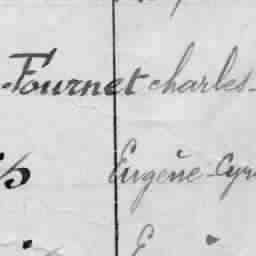 Fournet charles-
Eugène-Cyr